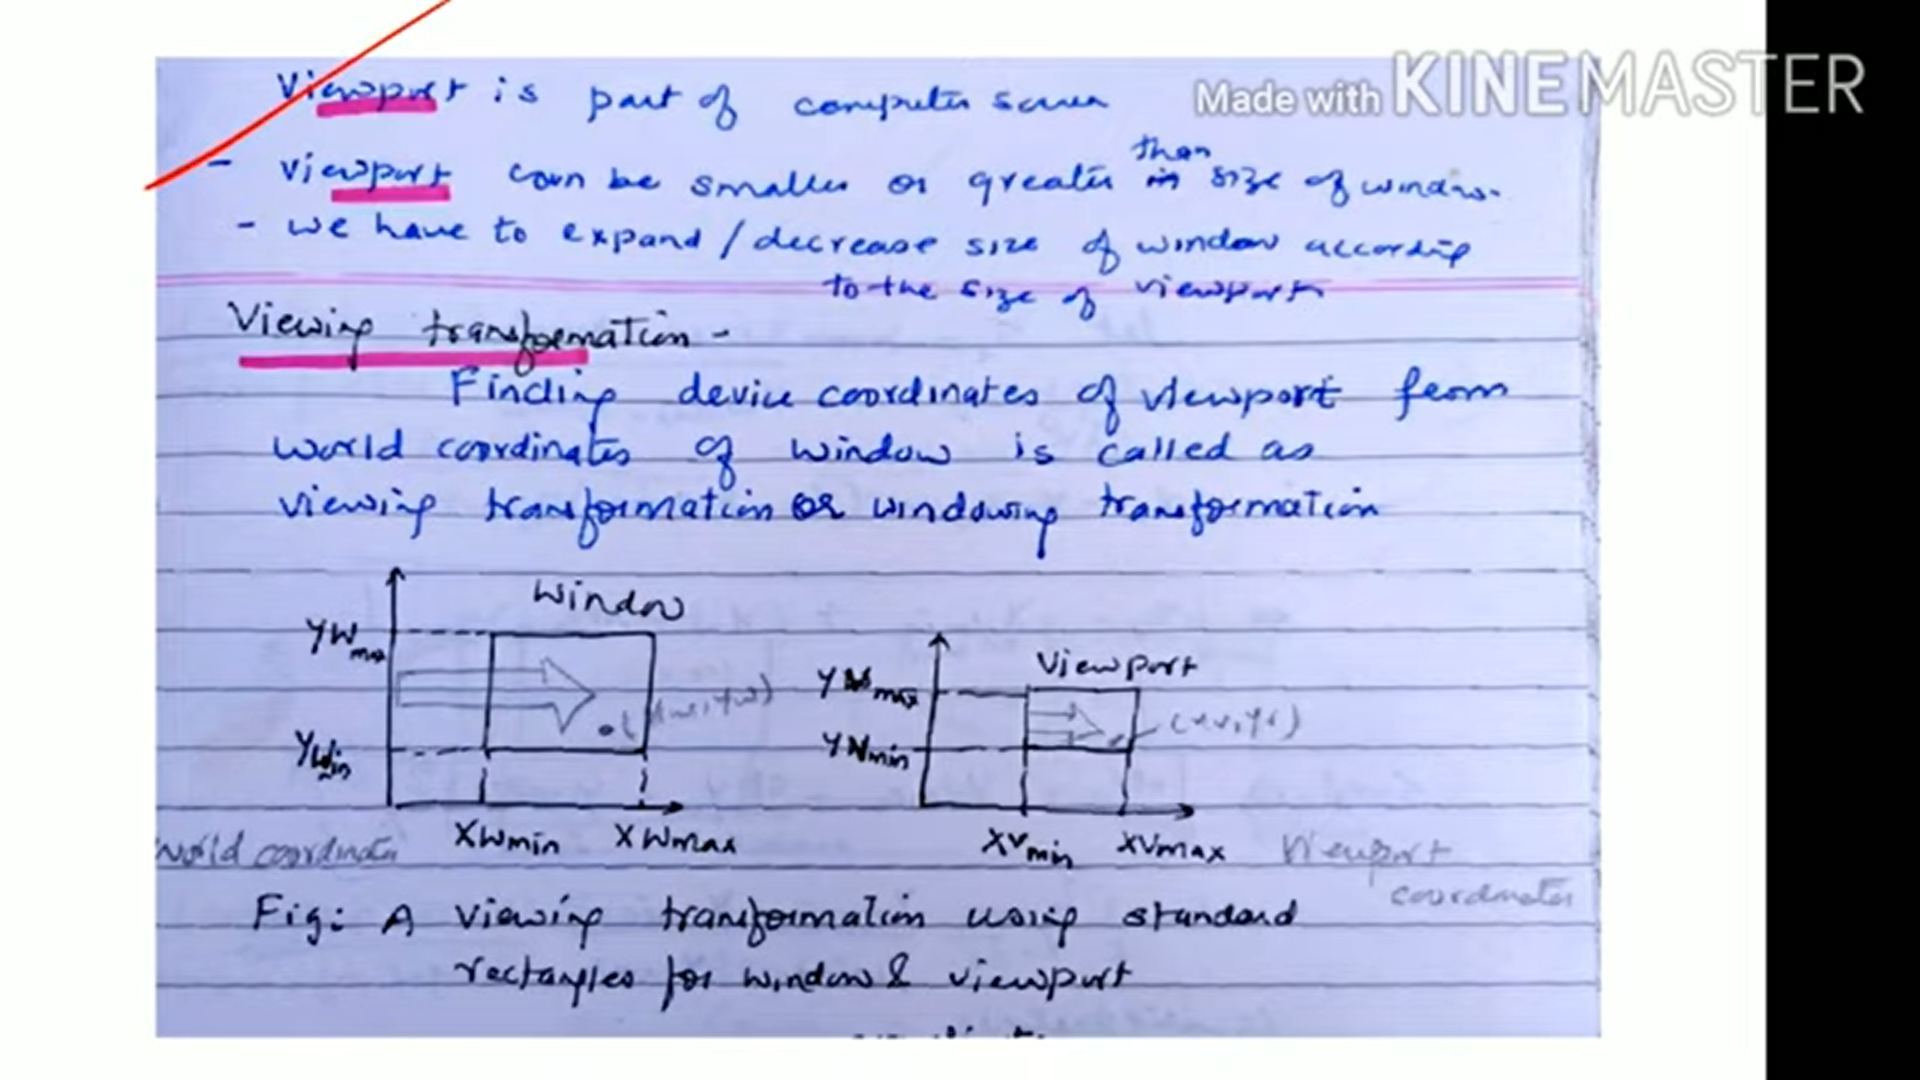 Viewport is part of computer screen
Made with KINEMASTER
than
- Viewport can be smaller or greater in size of window.
- we have to expand / decrease size of window according
to the size of viewport
Viewing transformation -
Finding device coordinates of viewport from
world coordinates of window is called as
viewing transformation OR windowing transformation
Window
YWmax
(xw, yw)
YWmin
XWmin XWmax
World coordinates
Viewport
YVmax
(xv, yv)
YVmin
XVmin XVmax
Viewport
coordinates
Fig: A viewing transformation using standard
rectangles for window & viewport